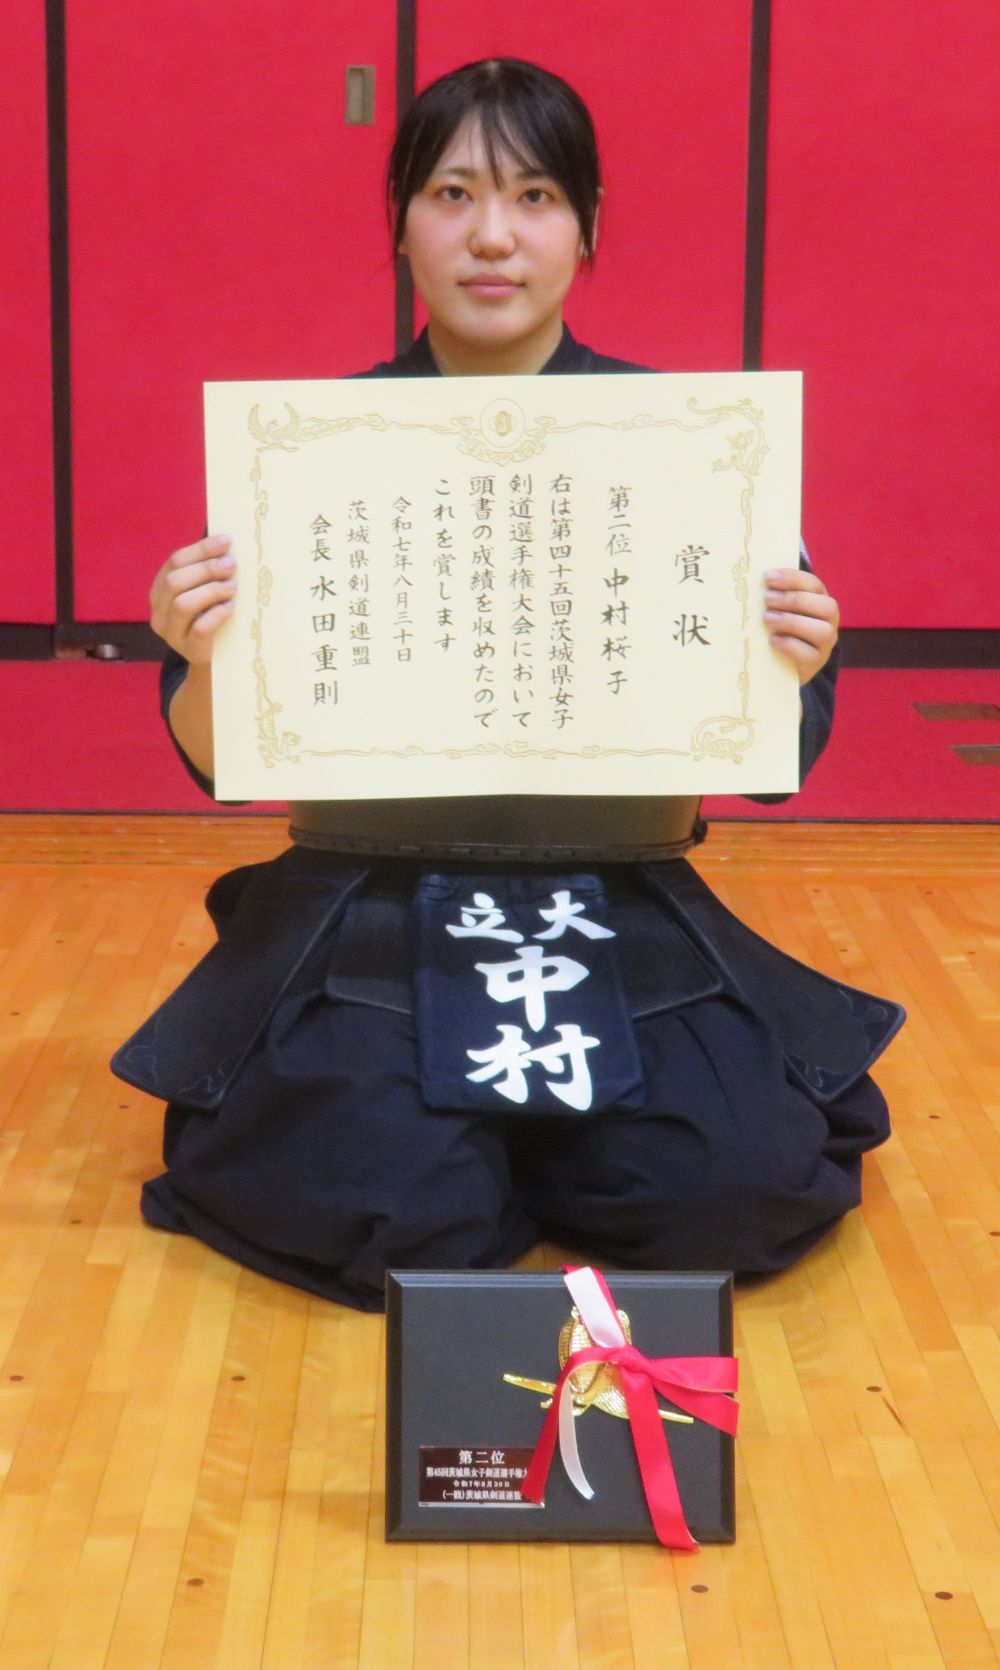 賞状
第二位 中村 桜子
右は第四十五回茨城県女子
剣道選手権大会において
頭書の成績を収めたので
これを賞します
令和七年八月三十日
茨城県剣道連盟
会長 水田重則
大立
中村
第二位
第45回茨城県女子剣道選手権大
令和7年8月30日
(一財)茨城県剣道連盟